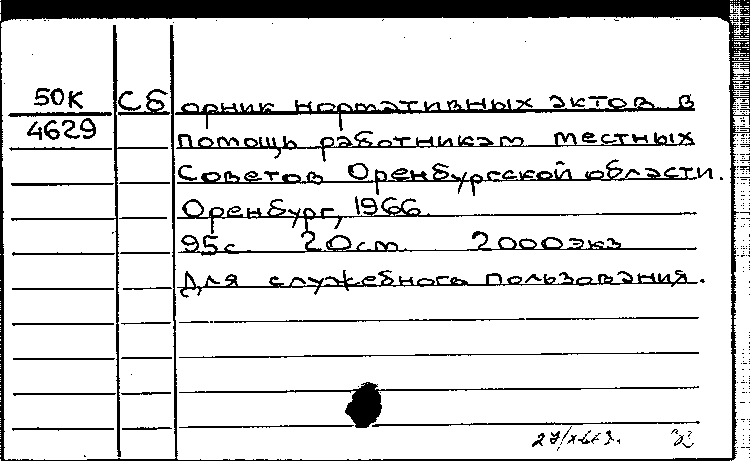 50К Сборник нормативных актов в
4629 помощь работникам местных
Советов Оренбургской области.
Оренбург, 1966.
95с. 20см. 2000экз
Для служебного пользования.